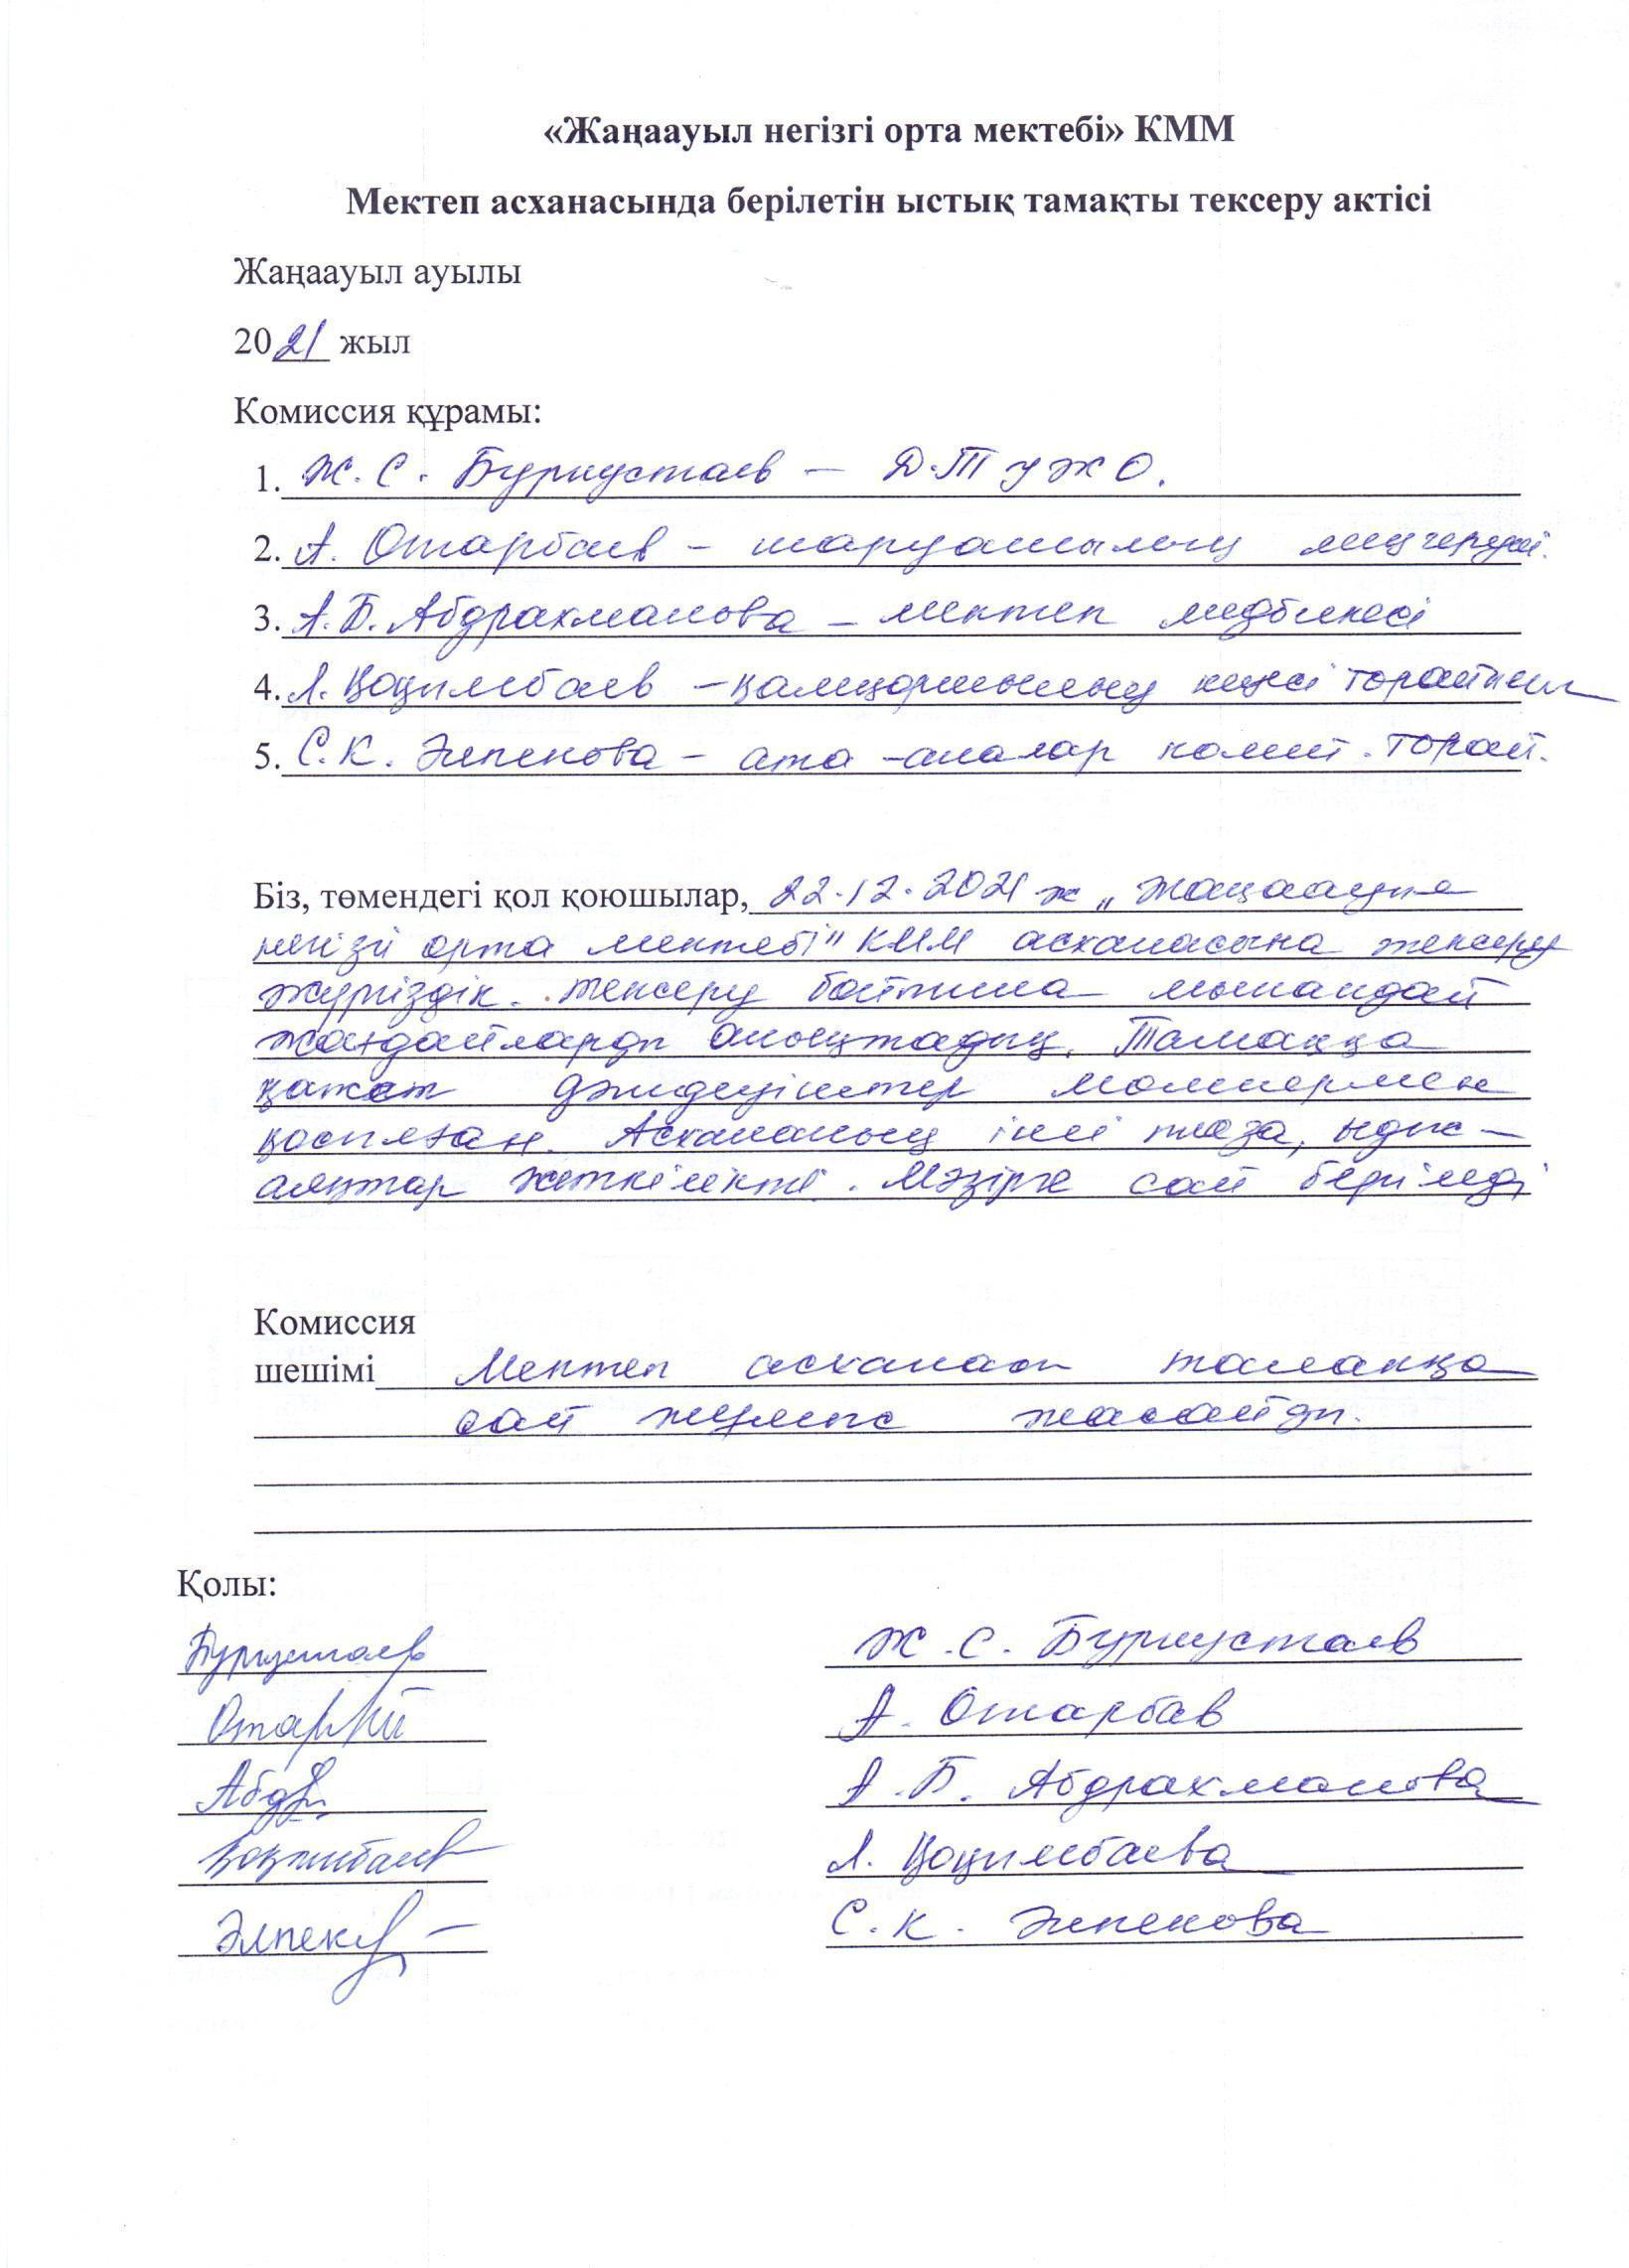 «Жаңаауыл негізгі орта мектебі» КММ
Мектеп асханасында берілетін ыстық тамақты тексеру актісі
Жаңаауыл ауылы
2021 жыл
Комиссия құрамы:
1. Ж. С. Буркустаев – Д.Т ЖО.
2. А. Отарбаев – шаруашылық меңгеруші.
3. А. Б. Абдрахманова – мектеп медбикесі
4. Л. – қамқоршылық кеңсі торайымы
5. С. К. Элпекова – ата-аналар комит. торай.
Біз, төмендегі қол қоюшылар, 22.12.2021 ж „Жаңаауыл
негізгі орта мектебі" КММ асханасына тексеру
жүргіздік. Тексеру бойынша мынандай
жағдайларды анықтадық. Тамаққа
қажет дәмдеуіштер мөлшермен
қосылған. Асхананың іші таза, ыдыс-
аяқтар жеткілікті. Мәзірге сай берілді
Комиссия
шешімі Мектеп асханасы талапқа
сай жұмыс жасайды.
Қолы:
Буркустаев Ж. С. Буркустаев
А. Отарбаев
Абдр А. Б. Абдрахманова
Л.
Әлпек С. К. Элпекова